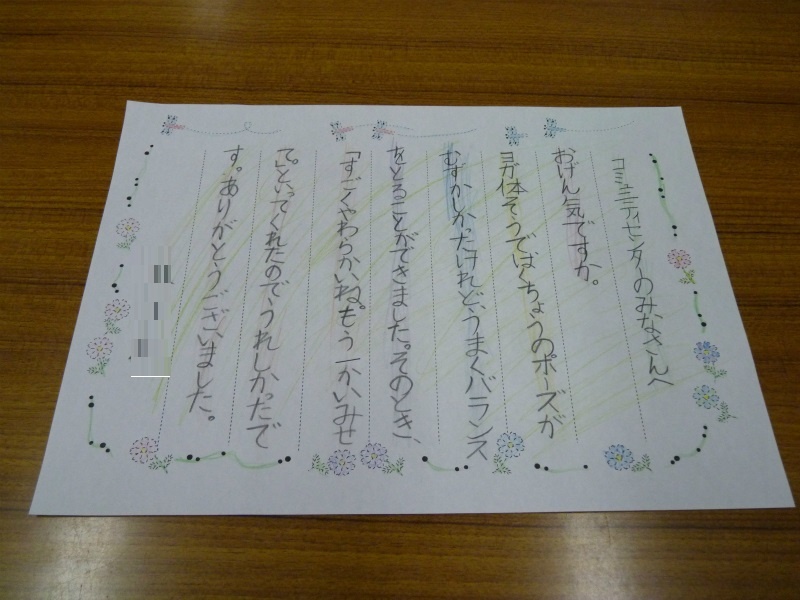 コミュニティセンターのみなさんへ
おげん気ですか。
ヨガ体そうでは、ちょうのポーズが
むずかしかったけれど、うまくバランス
をとることができました。そのとき、
「すごくやわらかいね。もう一かいみせ
て。」といってくれたので、うれしかったで
す。ありがとうございました。